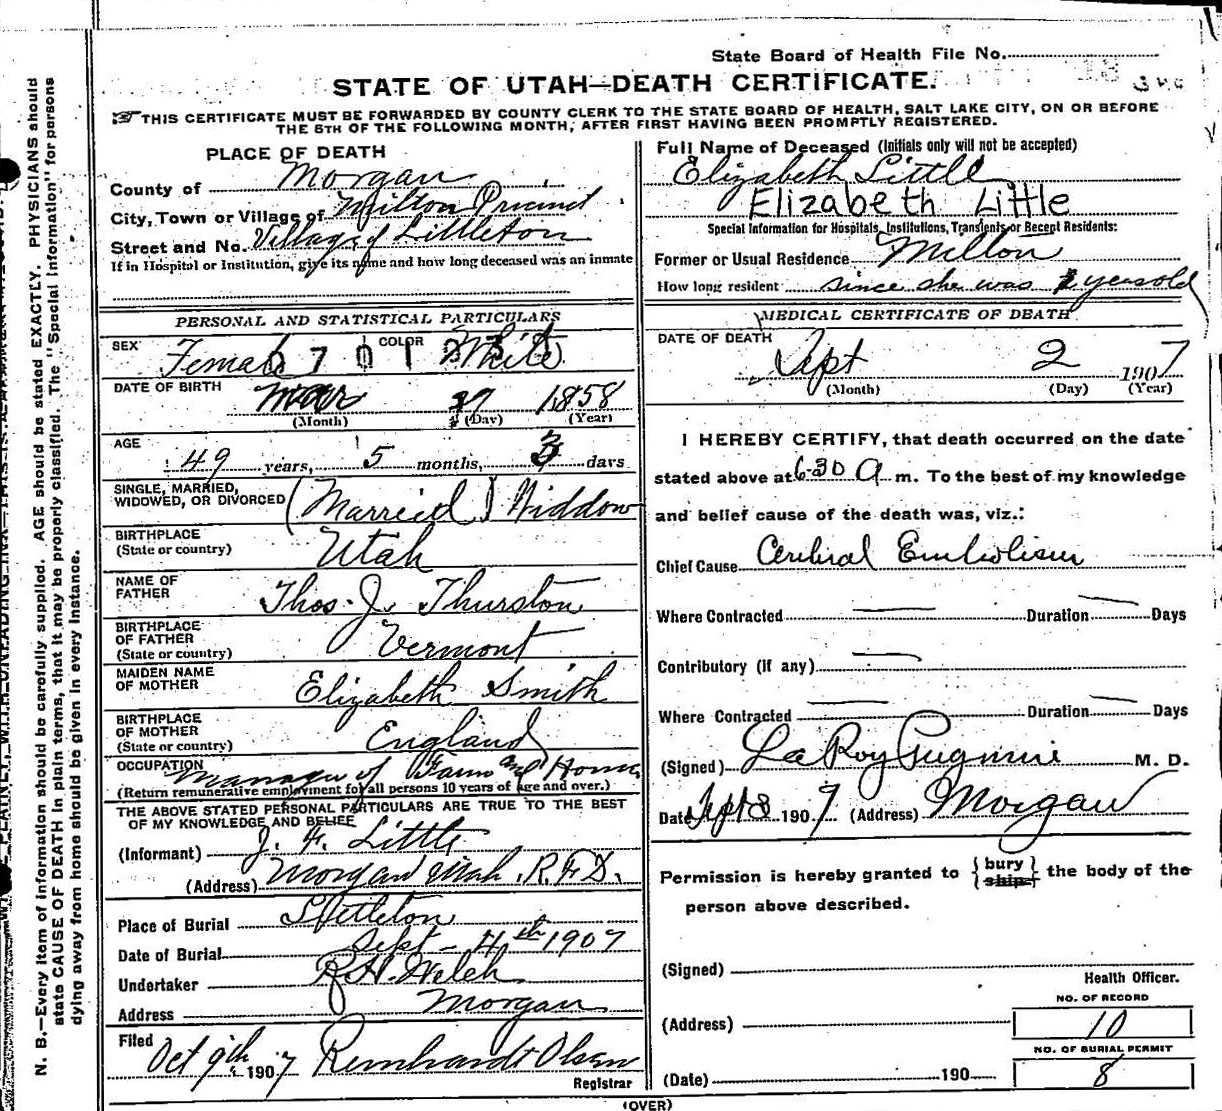 State Board of Health File No.
STATE OF UTAH—DEATH CERTIFICATE.
THIS CERTIFICATE MUST BE FORWARDED BY COUNTY CLERK TO THE STATE BOARD OF HEALTH, SALT LAKE CITY, ON OR BEFORE
THE 5TH OF THE FOLLOWING MONTH, AFTER FIRST HAVING BEEN PROMPTLY REGISTERED.
PLACE OF DEATH
County of Morgan
City, Town or Village of Milton Princint
Street and No. Village of Littleton
If in Hospital or Institution, give its name and how long deceased was an inmate
Full Name of Deceased (Initials only will not be accepted)
Elizabeth Little
Elizabeth Little
Special Information for Hospitals, Institutions, Transients or Recent Residents:
Former or Usual Residence Milton
How long resident since she was years old
PERSONAL AND STATISTICAL PARTICULARS
SEX Female COLOR White
DATE OF BIRTH Mar 1858
(Month) (Day) (Year)
AGE 49 years, 5 months, days
SINGLE, MARRIED,
WIDOWED, OR DIVORCED (Married) Widdow
BIRTHPLACE
(State or country) Utah
NAME OF
FATHER Thos. J. Thurston
BIRTHPLACE
OF FATHER
(State or country) Vermont
MAIDEN NAME
OF MOTHER Elizabeth Smith
BIRTHPLACE
OF MOTHER
(State or country) England
OCCUPATION Manager of Farm and Home
(Return remunerative employment for all persons 10 years of age and over.)
THE ABOVE STATED PERSONAL PARTICULARS ARE TRUE TO THE BEST
OF MY KNOWLEDGE AND BELIEF
(Informant) J. F. Little
(Address) Morgan Utah R.F.D.
Place of Burial Littleton
Date of Burial Sept - 4th 1907
Undertaker R.H. Welch
Address Morgan
Filed
Oct 9th 1907 Reinhardt Olsen
Registrar
MEDICAL CERTIFICATE OF DEATH
DATE OF DEATH
Sept 2 1907
(Month) (Day) (Year)
I HEREBY CERTIFY, that death occurred on the date
stated above at 6-30 A m. To the best of my knowledge
and belief cause of the death was, viz.:
Chief Cause Cerebral Embolism
Where Contracted Duration Days
Contributory (if any)
Where Contracted Duration Days
(Signed) LaRoy Pugmire M. D.
Date Sept 8 1907 (Address) Morgan
Permission is hereby granted to {bury ship} the body of the
person above described.
(Signed)
Health Officer.
NO. OF RECORD
(Address) 10
NO. OF BURIAL PERMIT
(Date) 190 8
(OVER)
N. B.—Every item of information should be carefully supplied. AGE should be stated EXACTLY. PHYSICIANS should
state CAUSE OF DEATH in plain terms, that it may be properly classified. The "Special Information" for persons
dying away from home should be given in every instance.